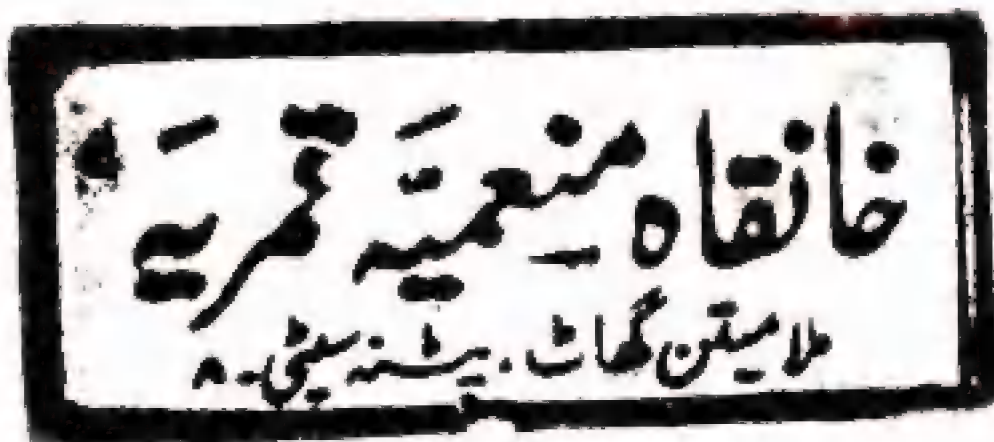 خانقاہ منعمیَہ قمریَہ
ملا میتن گھاٹ۔ پٹنہ سیٹی۔ ۸